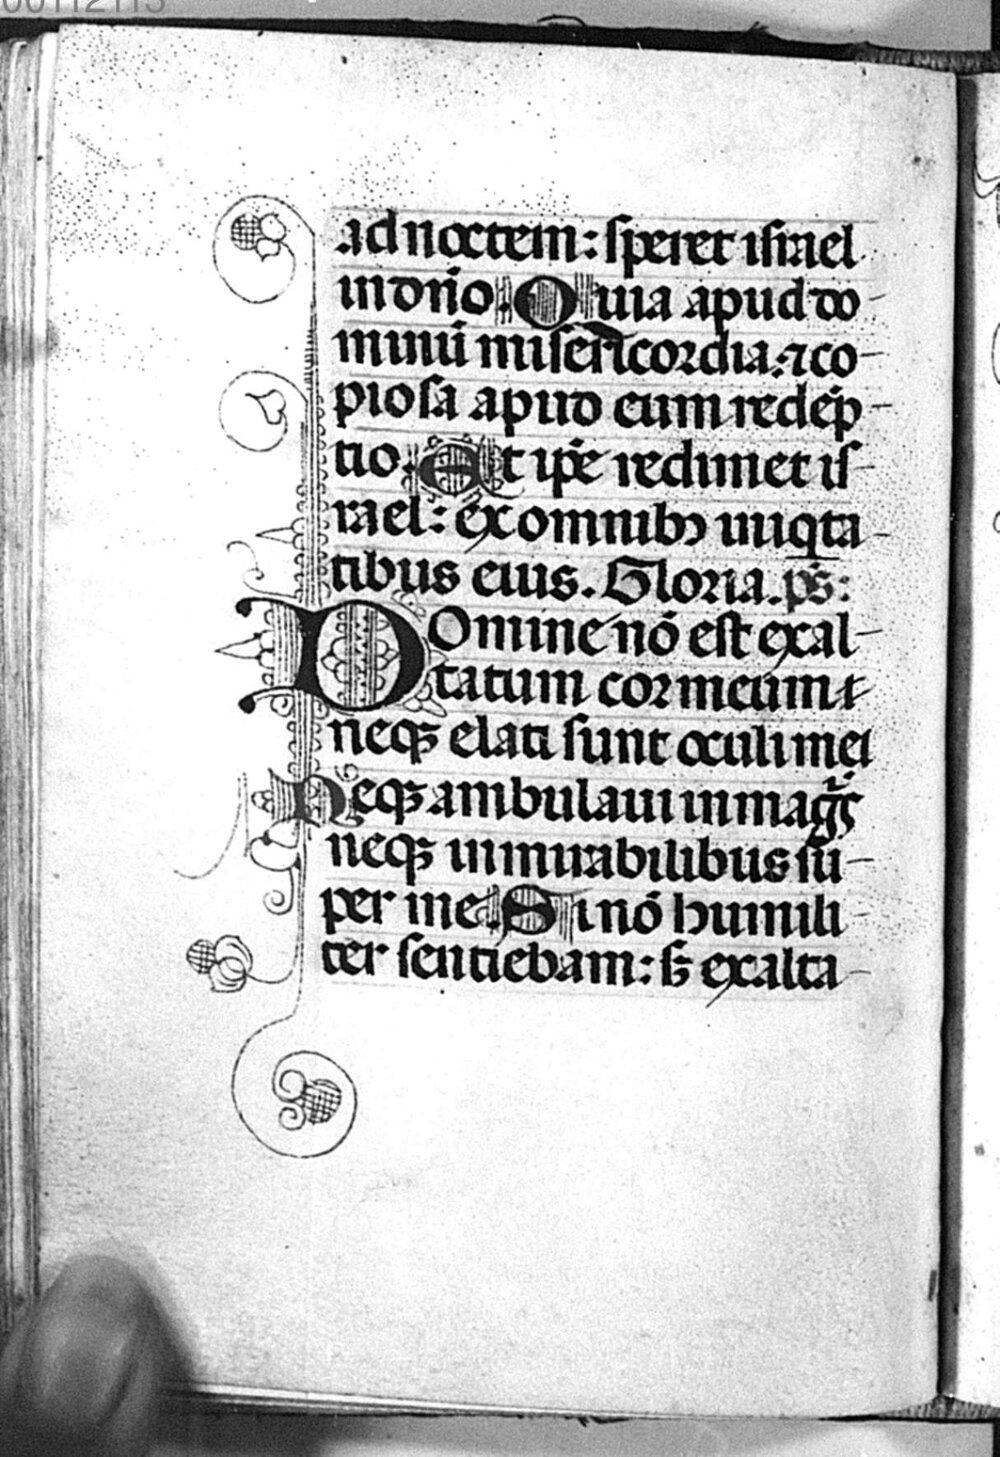 ad noctem: speret israel
in dnō. Quia apud do
minū misericordia: ⁊ co
piosa apud eum redēp
tio. Et ipē redimet is
rael: ex omnibꝫ iniqta
tibus eius. Gloria. ps̄:
Domine nō est exal
tatum cor meum: ⁊
neqꝫ elati sunt oculi mei
Neqꝫ ambulaui in magīs
neqꝫ in mirabilibus sū
per me. Si nō humili
ter sentiebam: sꝫ exalta